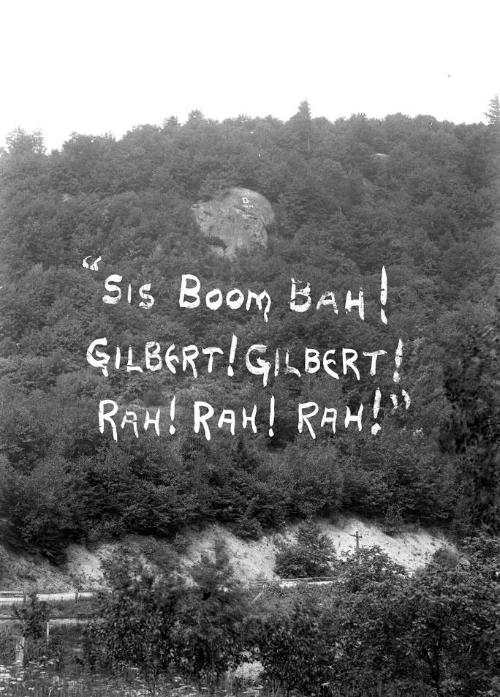 “Sis Boom Bah!
Gilbert! Gilbert!
Rah! Rah! Rah!”